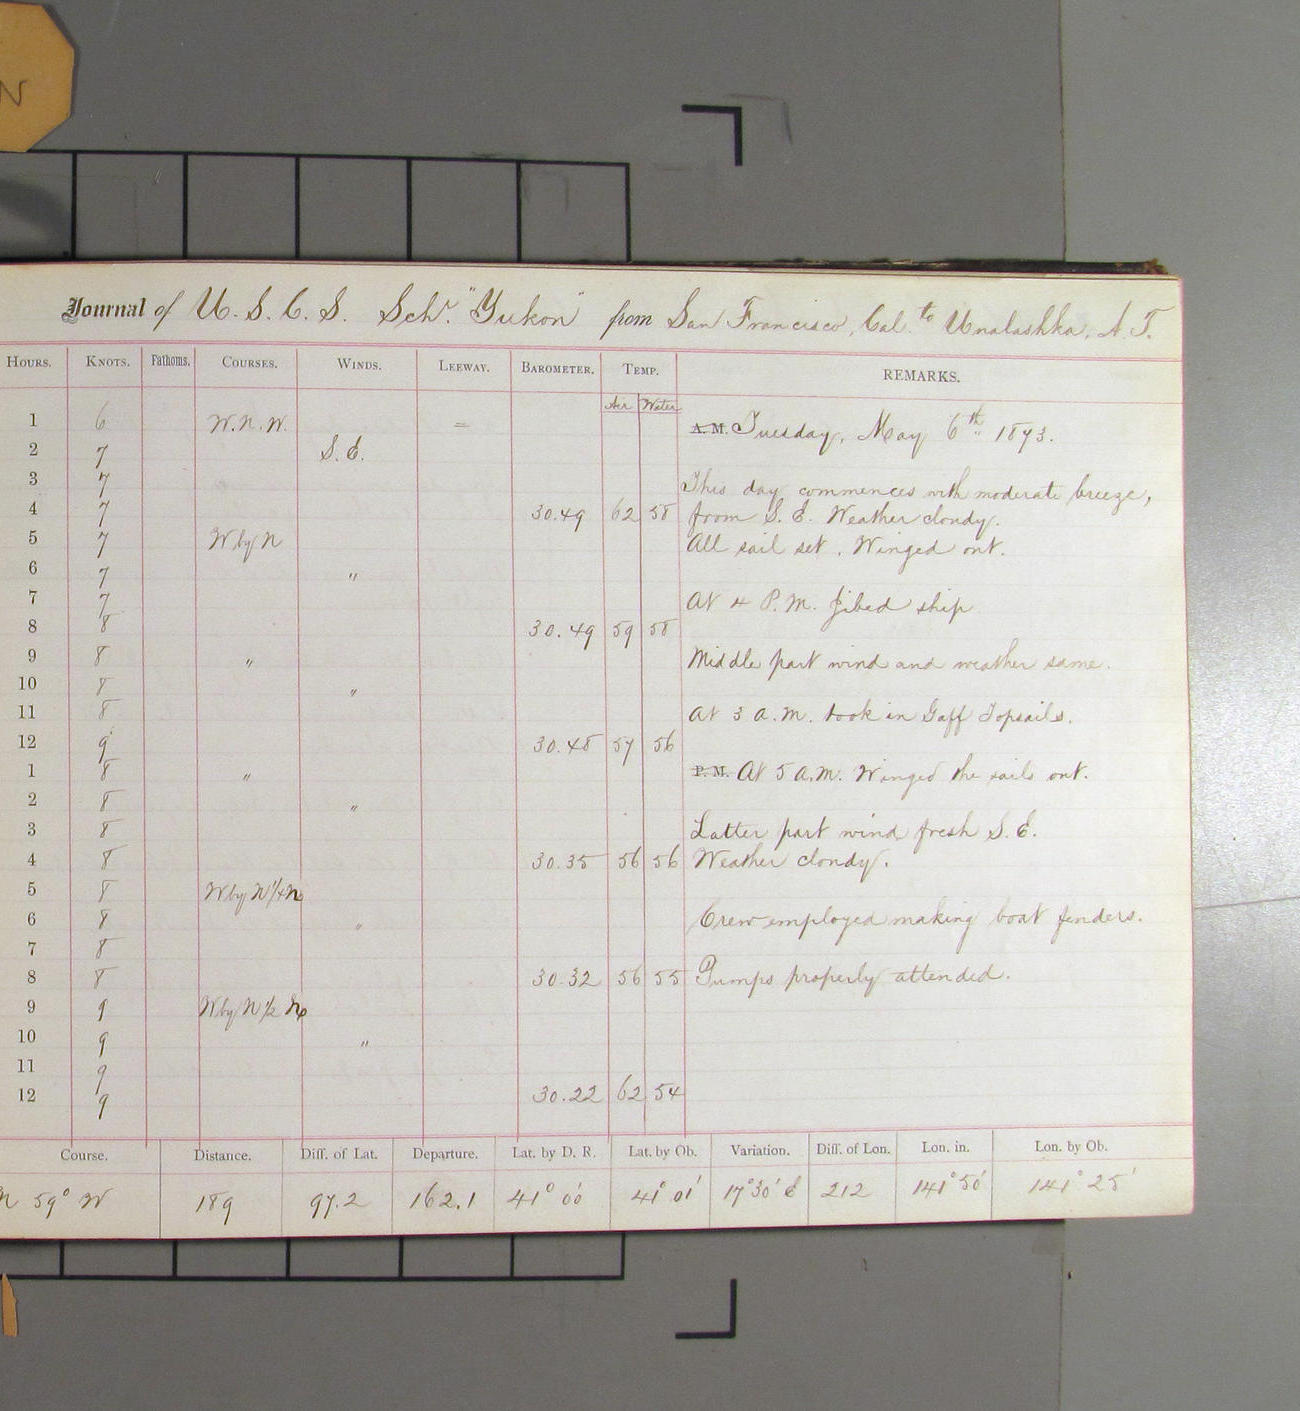 N
Journal of U. S. C. S. Schr. "Yukon" from San Francisco, Cal. to Unalashka, A. T.
HOURS. KNOTS. Fathoms. COURSES. WINDS. LEEWAY. BAROMETER. TEMP. REMARKS.
Air Water
1 6 W. N. W. = A.M. Tuesday, May 6th 1873.
2 7 S. E.
3 7 This day commences with moderate breeze,
4 7 30.49 62 58 from S. E. Weather cloudy.
5 7 W by N All sail set. Winged out.
6 7 "
7 7 At 4 P. M. Jibed ship
8 8 30.49 59 58
9 8 " Middle part wind and weather same.
10 8 "
11 8 At 3 a. m. took in Gaff Topsails.
12 9 30.48 57 56
1 8 " P. M. At 5 a.m. Winged the sails out.
2 8 "
3 8 Latter part wind fresh S. E.
4 8 30.35 56 56 Weather cloudy.
5 8 W by N 1/4 N
6 8 " Crew employed making boat fenders.
7 8
8 8 30.32 56 55 Pumps properly attended.
9 9 W by N 1/2 N
10 9 "
11 9
12 9 30.22 62 54
Course. Distance. Diff. of Lat. Departure. Lat. by D. R. Lat. by Ob. Variation. Diff. of Lon. Lon. in. Lon. by Ob.
N 59° W 189 97.2 162.1 41° 00' 41° 01' 17° 30' E 212 141° 50' 141° 25'